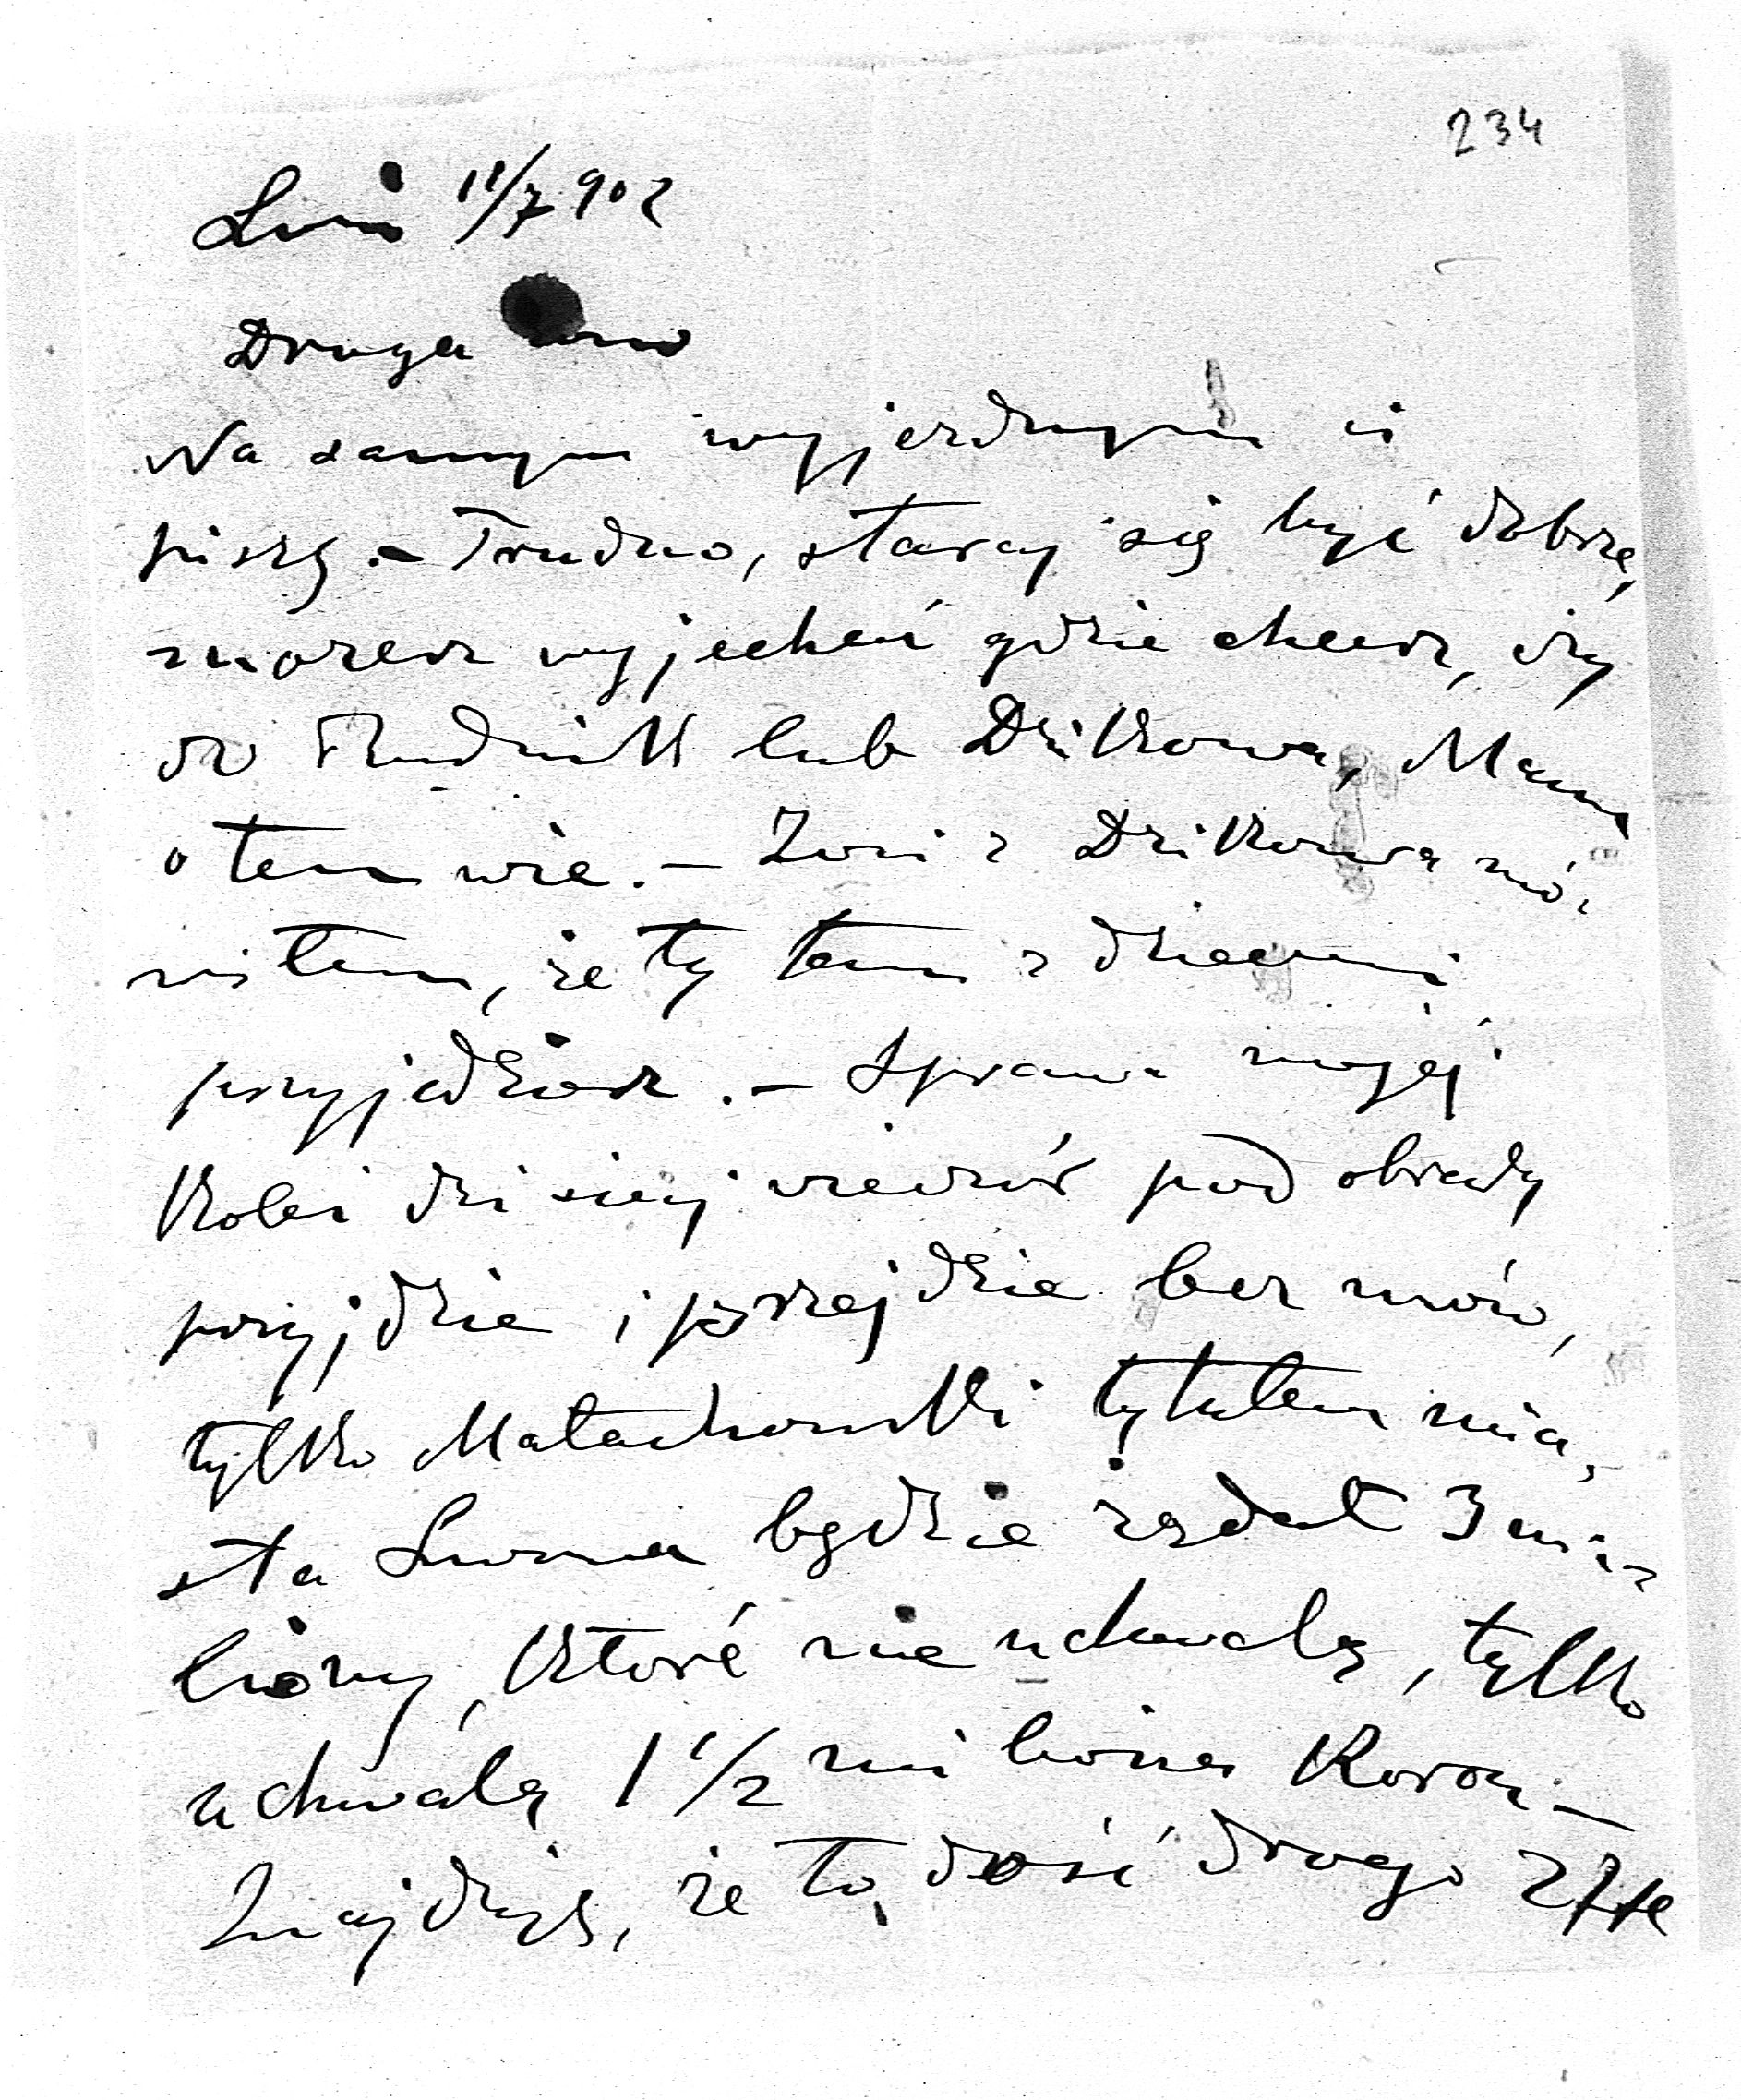 234
11/7 902
Droga
Na samym wyjezdnym ci
piszę. – Trudno, staraj się być dobrze,
możesz wyjechać gdzie chcesz, czy
do Rudnik lub Dzikowa, Mama
o tem wie. – Zosi z Dzikowa mó-
wiłem, że ty tam z dziećmi
przyjedziesz. – Sprawa mojej
Kolei dzisiaj wieczór pod obrady
przyjdzie i przejdzie bez mów,
tylko Małachowski tytułem mia-
sta Lwowa będzie żądał 3 mi-
liony, które nie uchwalą, tylko
uchwalą 1 1/2 miliona Koron –
Znajduję, że to dość drogo